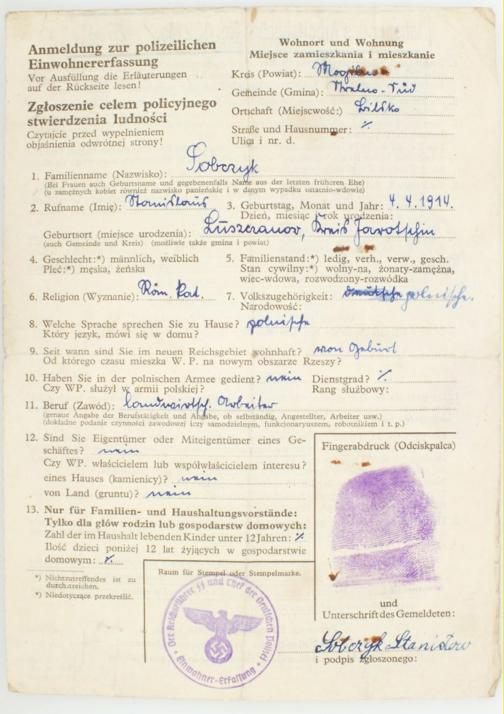 Anmeldung zur polizeilichen
Einwohnererfassung
Vor Ausfüllung die Erläuterungen
auf der Rückseite lesen!
Zgłoszenie celem policyjnego
stwierdzenia ludności
Czytajcie przed wypełnieniem
objaśnienia odwrótnej strony!
Wohnort und Wohnung
Miejsce zamieszkania i mieszkanie
Kreis (Powiat): Mogilno
Gemeinde (Gmina): -Süd
Ortschaft (Miejscwość:)
Straße und Hausnummer: %
Ulica i nr. d.
1. Familienname (Nazwisko): Sobczyk
(Bei Frauen auch Geburtsname und gegebenenfalls Name aus der letzten früheren Ehe)
(u zamężnych kobiet również nazwisko panieńskie i w danym wypadku ostatnio-wdowie)
2. Rufname (Imię): Stanislaus
3. Geburtstag, Monat und Jahr: 4. 4. 1914.
Dzień, miesiąc i rok urodzenia:
Geburtsort (miejsce urodzenia): Kreis Jarotschin
(auch Gemeinde und Kreis) (możliwie także gmina i powiat)
4. Geschlecht:*) männlich, weiblich
Płeć:*) męska, żeńska
5. Familienstand:*) ledig, verh., verw., gesch.
Stan cywilny:*) wolny-na, żonaty-zamężna,
wiec-wdowa, rozwodzony-rozwódka
6. Religion (Wyznanie): Röm. kat.
7. Volkszugehörigkeit: deutsche polnische.
Narodowość:
8. Welche Sprache sprechen Sie zu Hause? polnische
Który język, mówi się w domu?
9. Seit wann sind Sie im neuen Reichsgebiet wohnhaft? von Geburt
Od którego czasu mieszka W. P. na nowym obszarze Rzeszy?
10. Haben Sie in der polnischen Armee gedient? nein Dienstgrad? %
Czy WP. służył w armii polskiej? Rang służbowy:
11. Beruf (Zawód): landwirtsch. Arbeiter
(genaue Angabe der Berufstätigkeit und Angabe, ob selbständig, Angestellter, Arbeiter usw.)
(dokładne podanie czynności zawodowej czy samodzielnym, funkcjonaryuszem, robotnikiem i t. p.)
12. Sind Sie Eigentümer oder Miteigentümer eines Ge-
schäftes? nein
Czy WP. właścicielem lub współwłaścicielem interesu?
eines Hauses (kamienicy)? nein
von Land (gruntu)? nein
13. Nur für Familien- und Haushaltungsvorstände:
Tylko dla głów rodzin lub gospodarstw domowych:
Zahl der im Haushalt lebenden Kinder unter 12 Jahren: %
Ilość dzieci poniżej 12 lat żyjących w gospodarstwie
domowym: %
*) Nichtzutreffendes ist zu
durchstreichen.
*) Niedotyczące przekreślić.
Raum für Stempel oder Stempelmarke.
Der Reichsführer SS und Chef der Deutschen Polizei
Einwohner-Erfassung
Fingerabdruck (Odciskpalca)
und
Unterschrift des Gemeldeten:
Sobczyk Stanisław
i podpis zgłoszonego: